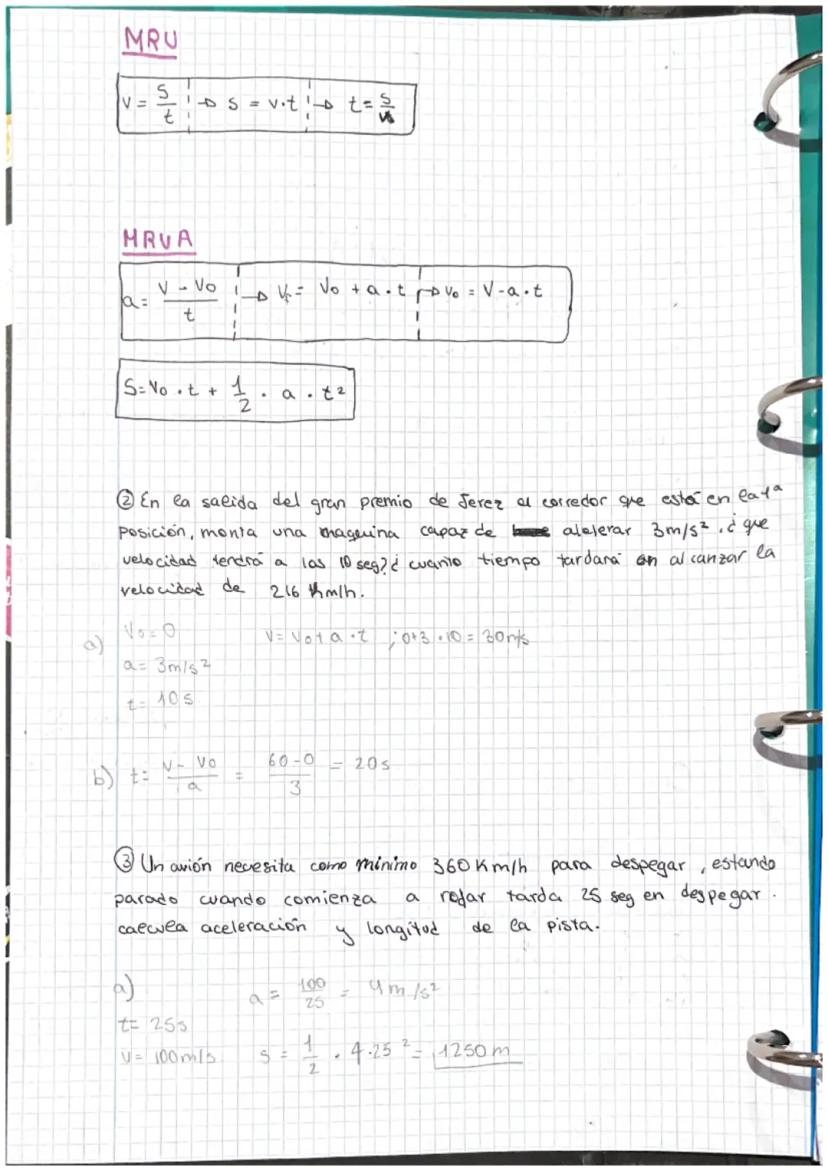 MRU
v = s/t → s = v·t → t = s/v
MRUA
a = v - v0 / t → vf = v0 + a·t → v0 = v - a·t
S = v0 · t + 1/2 · a · t²
② En la salida del gran premio de Jerez al corredor que está en la 1ª
posición, monta una maquina capaz de alelerar 3m/s². ¿que
velocidad tendrá a los 10 seg? ¿cuanto tiempo tardará en alcanzar la
velocidad de 216 km/h.
a) V0 = 0 v = v0 + a · t ; 0+3 · 10 = 30m/s
a = 3m/s²
t = 10s
b) t = v - v0 / a = 60 - 0 / 3 = 20s
③ Un avión necesita como mínimo 360 Km/h para despegar, estando
parado cuando comienza a rodar tarda 25 seg en despegar.
calcula aceleración y longitud de la pista.
a) a = 100/25 = 4m/s²
t = 25s
v = 100m/s s = 1/2 · 4·25² = 1250 m